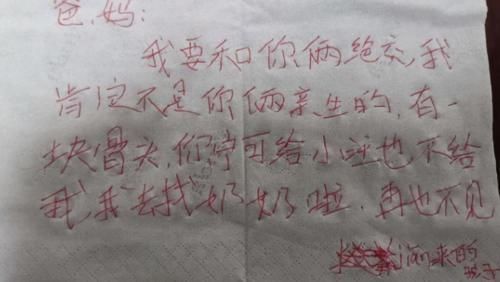 爸、妈:
我要和你俩绝交,我
肯定不是你俩亲生的,有一
块骨头,你宁可给小旺也不给
我,我去找奶奶啦,再也不见
来的
孩子